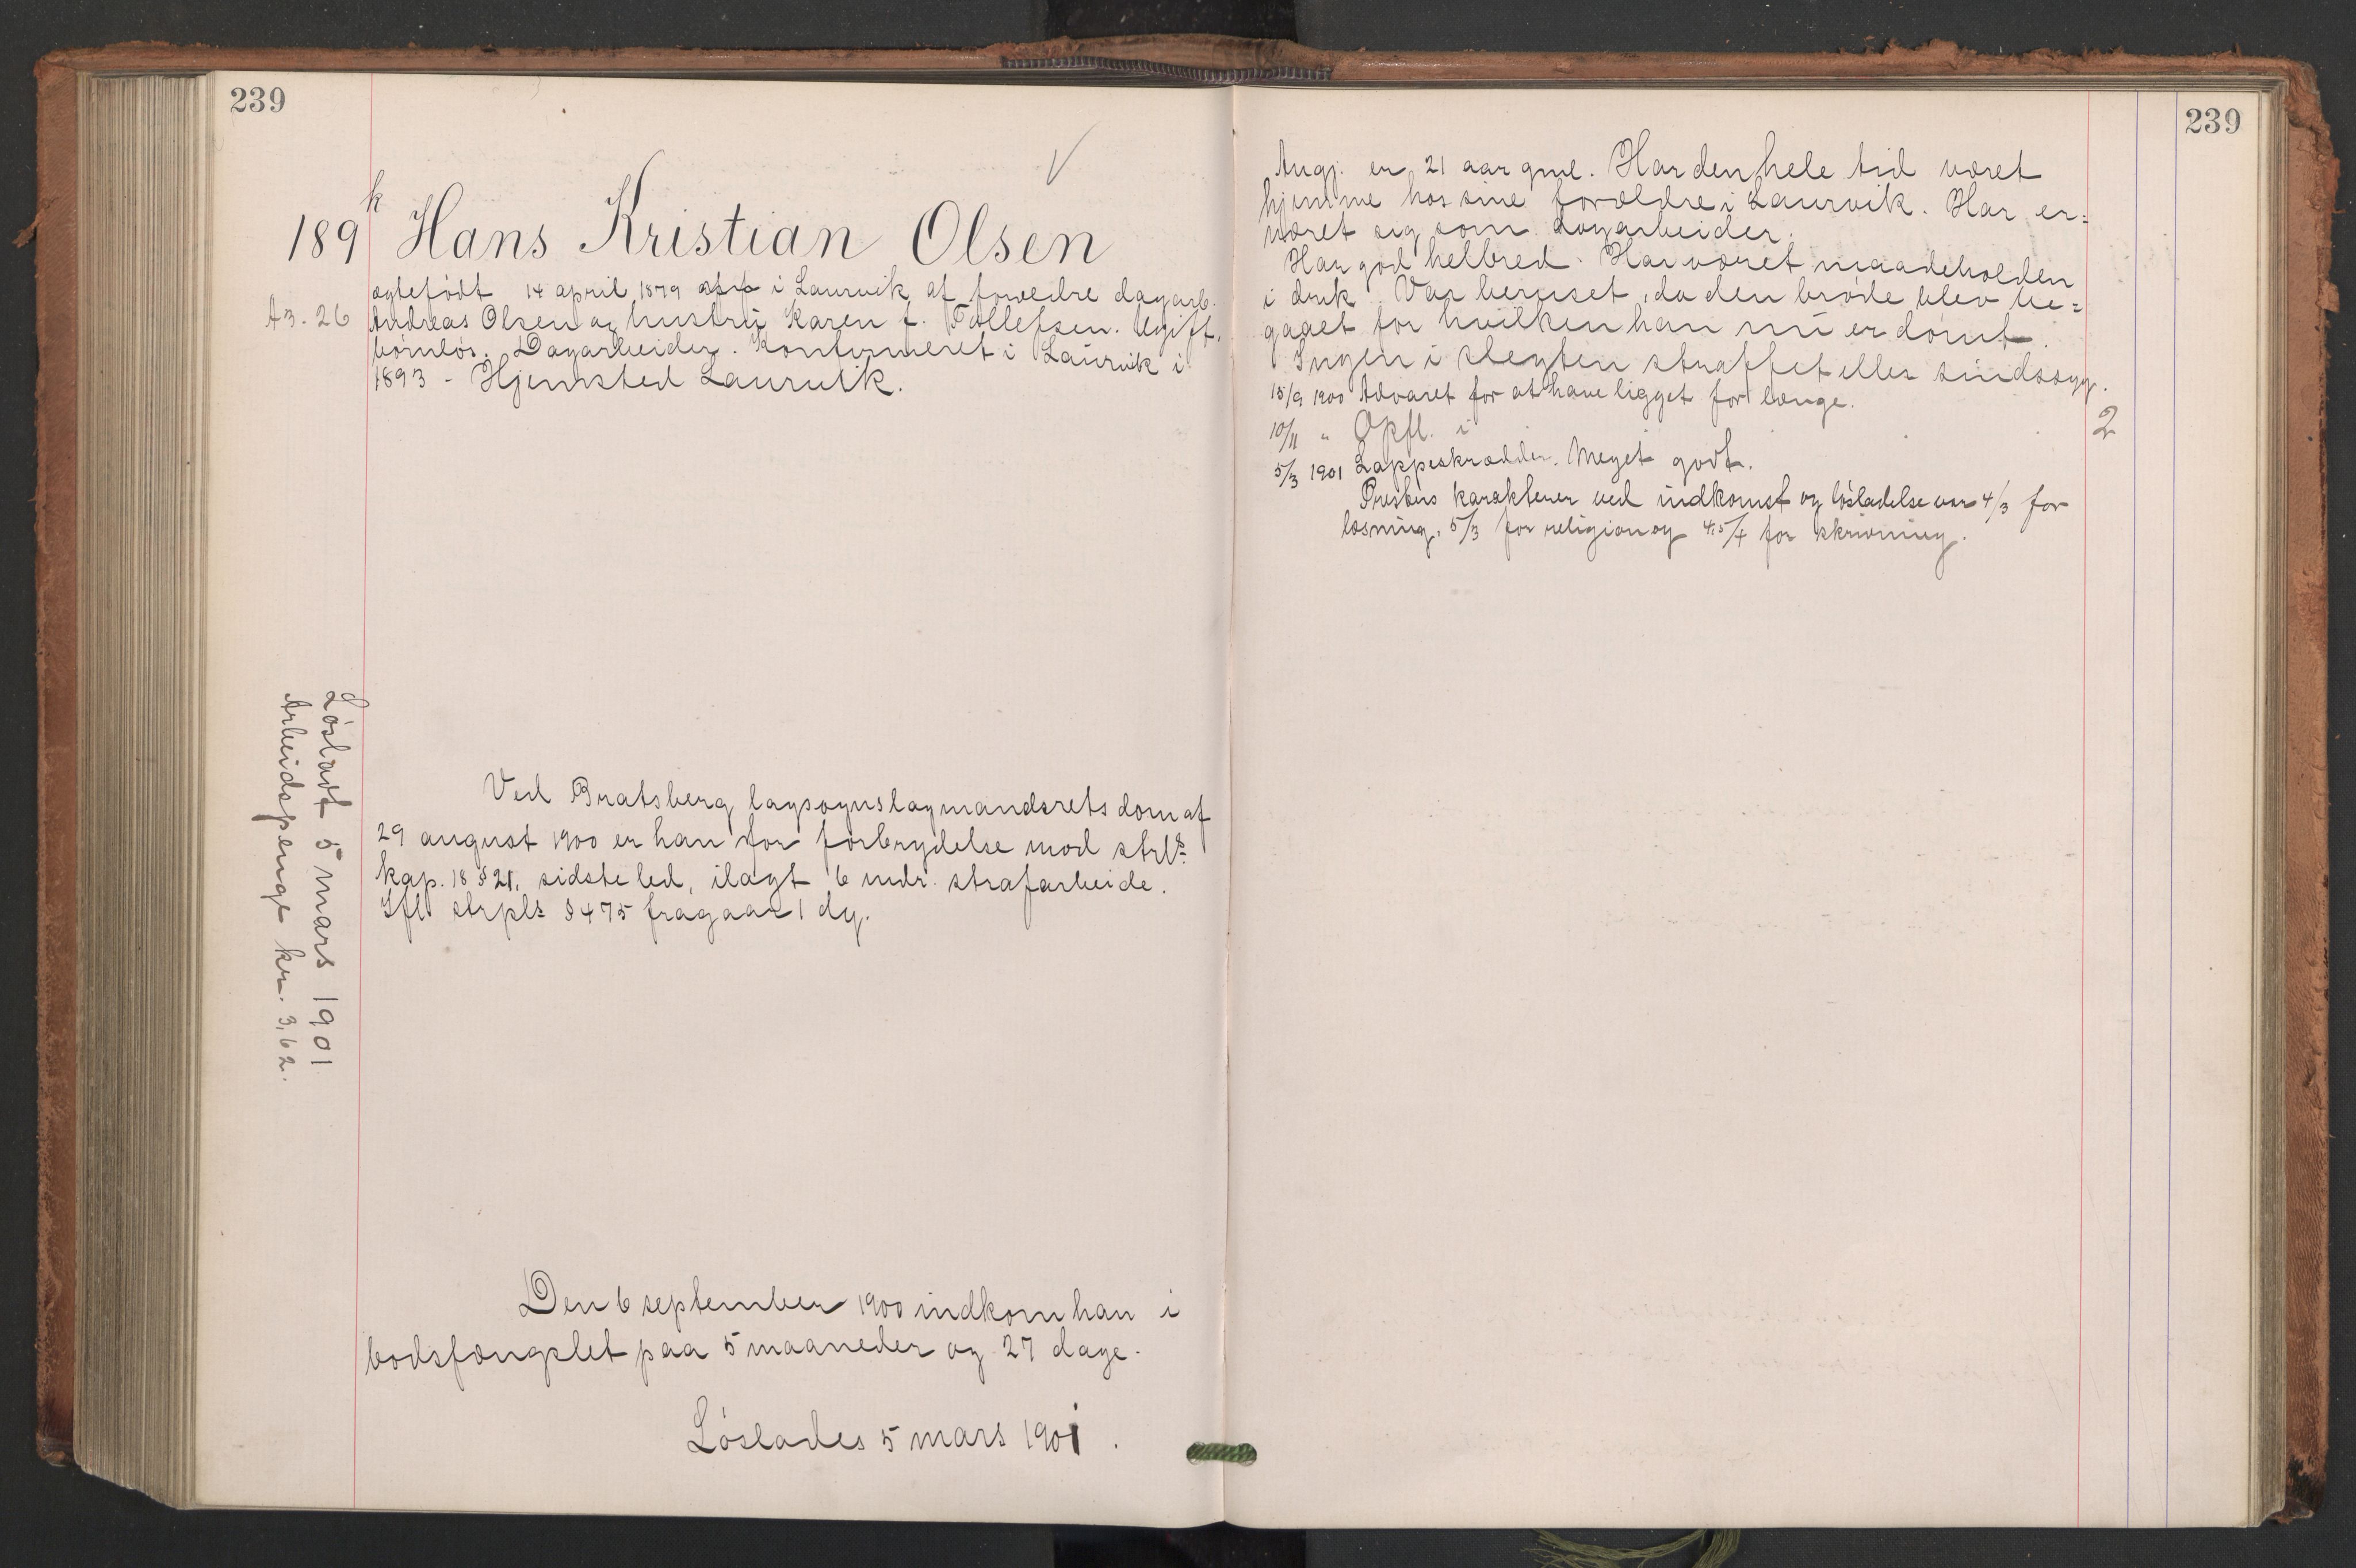 239
k
189 Hans Kristian Olsen
ægtefødt 14 april 1879 i Laurvik af forældre dagarb.
A3. 26 Andreas Olsen og hustru Karen f. Tollefsen. Ugift,
börnlös. Dagarbeider. Konfirmeret i Laurvik i
1893 - Hjemsted Laurvik.
Lösladt 5 mars 1901
Arbeidspenge kr. 3,62.
Ved Bratsberg lagsogns lagmandsrets dom af
29 august 1900 er han for forbrydelse mod strls
kap. 18 § 21, sidste led, ilagt 6 mdr. strafarbeide.
Ifl. strpls § 475 fragaar 1 dg.
Den 6 september 1900 indkom han i
bodsfængslet paa 5 maaneder og 27 dage.
Löslades 5 mars 1901.
239
Angj. er 21 aar gml. Har den hele tid været
hjemme hos sine forældre i Laurvik. Har er=
næret sig som dagarbeider.
Har god helbred. Har været maadeholden
i druk. Var beruset, da den bröde blev be=
gaaet for hvilken han nu er dömt.
Ingen i slegten straffet eller sindssyg.
15/9 1900 Advaret for at have ligget for længe.
10/11 " Opfl. i 2
5/3 1901 Lappeskrædder. Meget godt.
Prestens karakterer ved indkomst og lösladelse var 4/3 for
læsning, 5/3 for religion og 4,5/4 for skrivning.